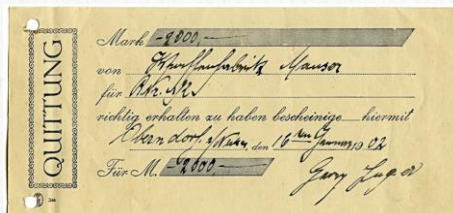 QUITTUNG
Mark -2000.-
von Waffenfabrik Mauser
für
richtig erhalten zu haben bescheinige hiermit
Oberndorf a/Neckar, den 16 ten Januar 1902
Für M. -2000.-
Georg Luger